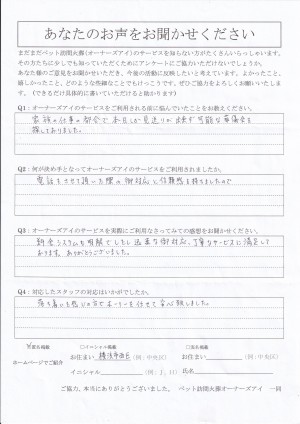 あなたのお声をお聞かせください
まだまだペット訪問火葬(オーナーズアイ)のサービスを知らない方がたくさんいらっしゃいます。
その方たちに少しでも知っていただくためにアンケートにご協力いただけないでしょうか。
あなた様のご意見をお聞かせいただき、今後の活動に反映したいと考えています。よかったこと、
嬉しかったこと、どの様な些細なことでもけっこうです。ぜひご協力をよろしくお願いいたし
ます。(できるだけ具体的に書いていただけると助かります)
Q1:オーナーズアイのサービスをご利用される前に悩んでいたことをお教えください。
家族の仕事の都合で本日しか見送りが出来ず可能な葬儀会を
探しておりました。
Q2:何が決め手となってオーナーズアイのサービスをご利用されましたか。
電話をさせて頂いた際の御対応に信頼感を持ちましたので
Q3:オーナーズアイのサービスを実際にご利用なさってみての感想をお聞かせください。
料金システムも明解でしたし迅速な御対応、丁寧なサービスに満足して
おります。ありがとうございました。
Q4:対応したスタッフの対応はいかがでしたか。
落ち着いた感じの方で
任せて安心致しました。
匿名掲載
□イニシャル掲載
□実名掲載
ホームページでご紹介
お住まい 横浜市西区(例:中央区)
お住まい(例:中央区)
イニシャル(例:J、I)
氏名
ご協力、本当にありがとうございました。 ペット訪問火葬オーナーズアイ 一同